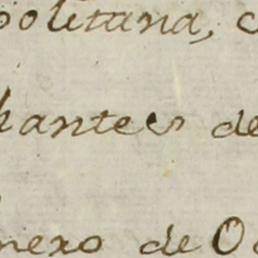 politana, c
hantes de
nexo de O